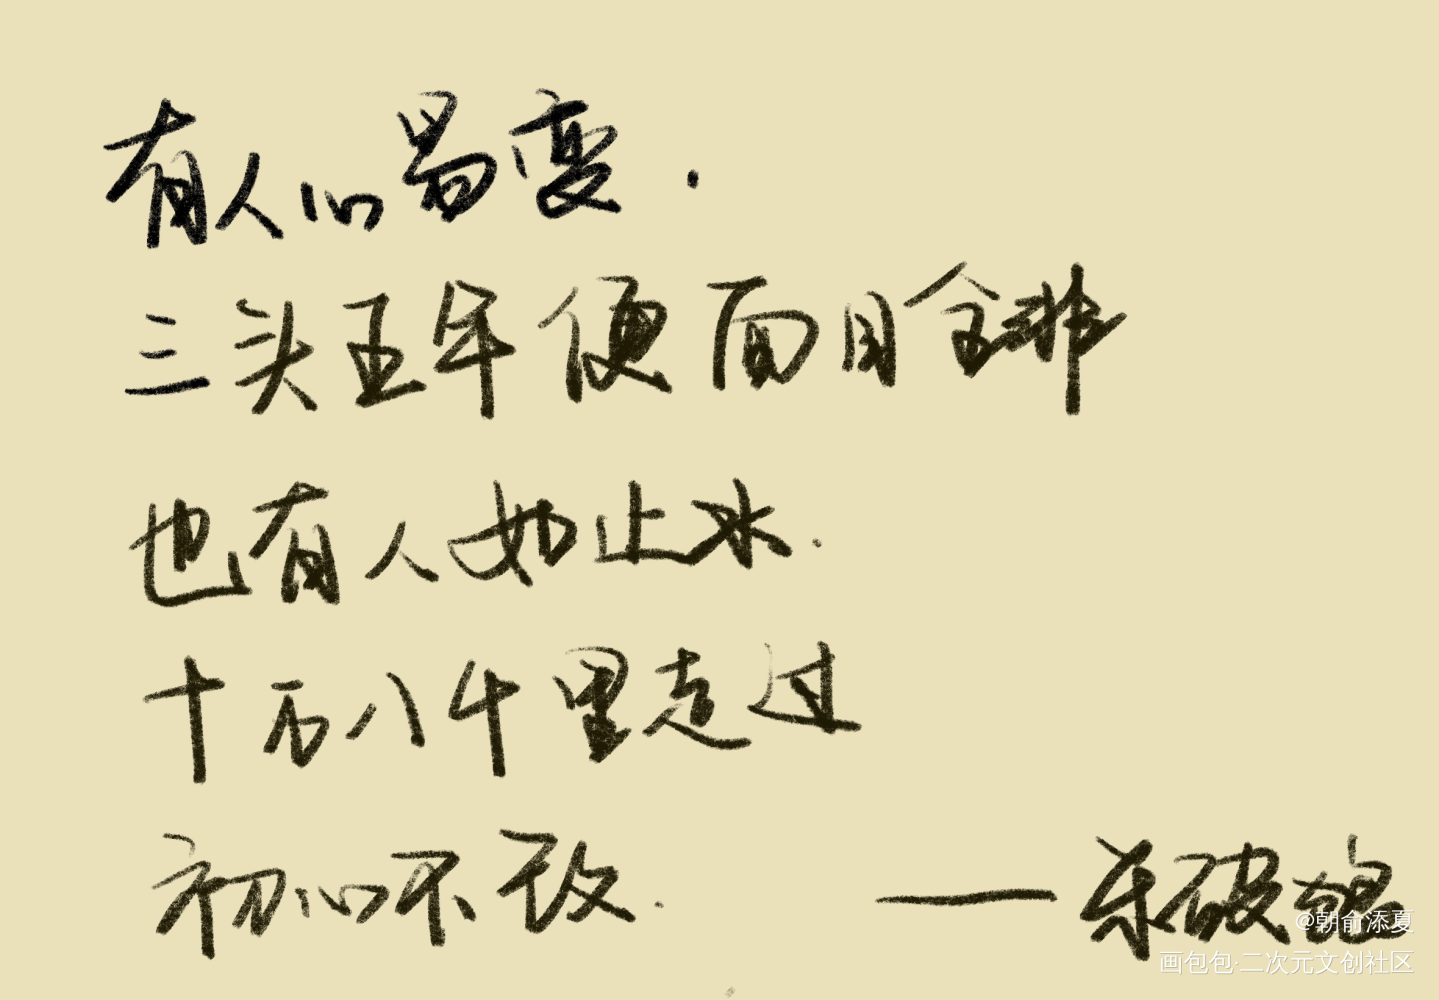 有人心易变.
三头五年便面目全非
也有人如止水.
十万八千里走过
初心不改.
——杀破狼
@朝俞添夏
画包包·二次元文创社区